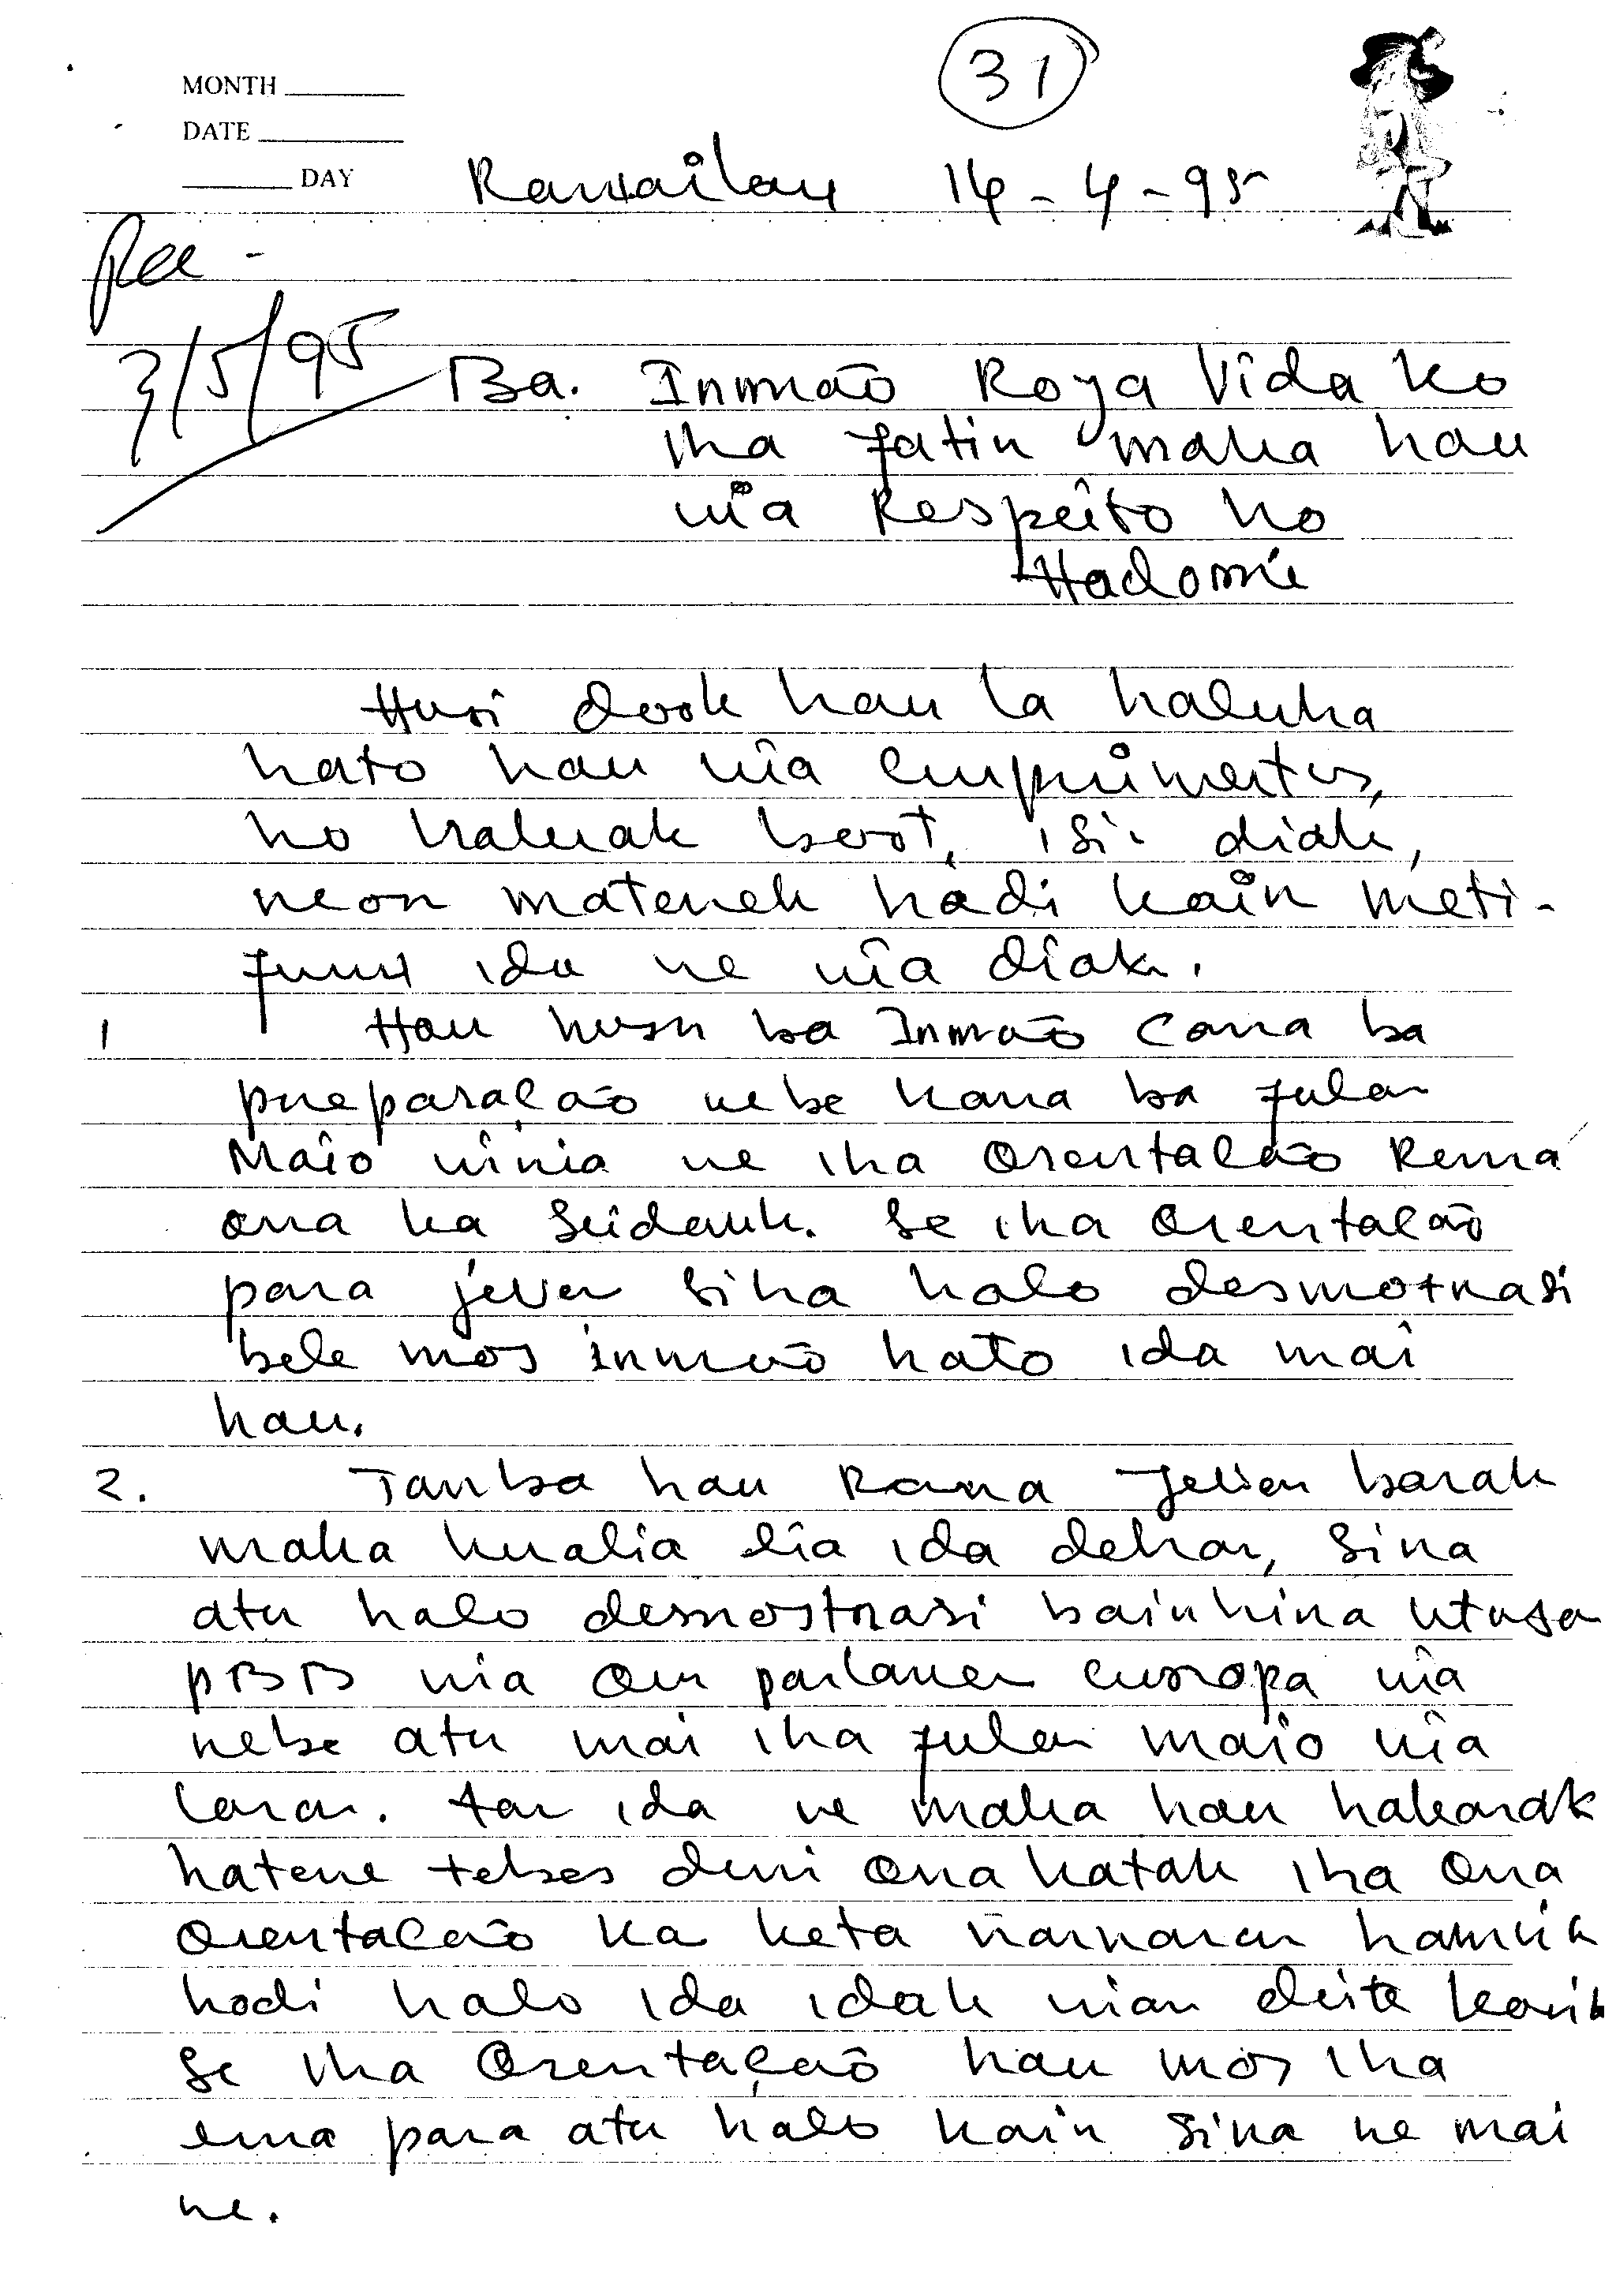 31
MONTH
DATE
DAY
14-4-95
Rec -
3/5/95
Ba. Inmão Roya Vida ho
iha fatin maka hau
nia Respeito ho
Hadomi
Husi dook hau la haluha
hato hau nia cumprimentus,
ho hakuak boot, isi diak,
neon matenek hadi kain meti-
ida ne nia diak.
1 Hau husu ba Inmão Cona ba
preparação nebe kona ba fulan
Maio ninia ne iha Orentalção Rema
ona ka Seidauk. Se iha Orentalção
para jeven siha halo desmotrasi
bele mos inmão hato ida mai
hau.
2. Tanba hau Rona Jeven barak
maka kualia lia ida dehan, Sira
atu halo desmostrasi bainhira Utusan
PBB nia Ou parlamen europa nia
nebe atu mai iha fulan maio nia
laran. tan ida ne maka hau hakarak
hatene tebes duni ona katak iha ona
Orentalção ka keta narnaran hamrik
hodi halo ida idak nian deit karik
Se iha Orentação hau mos iha
ema para atu halo kain Sira ne mai
ne.